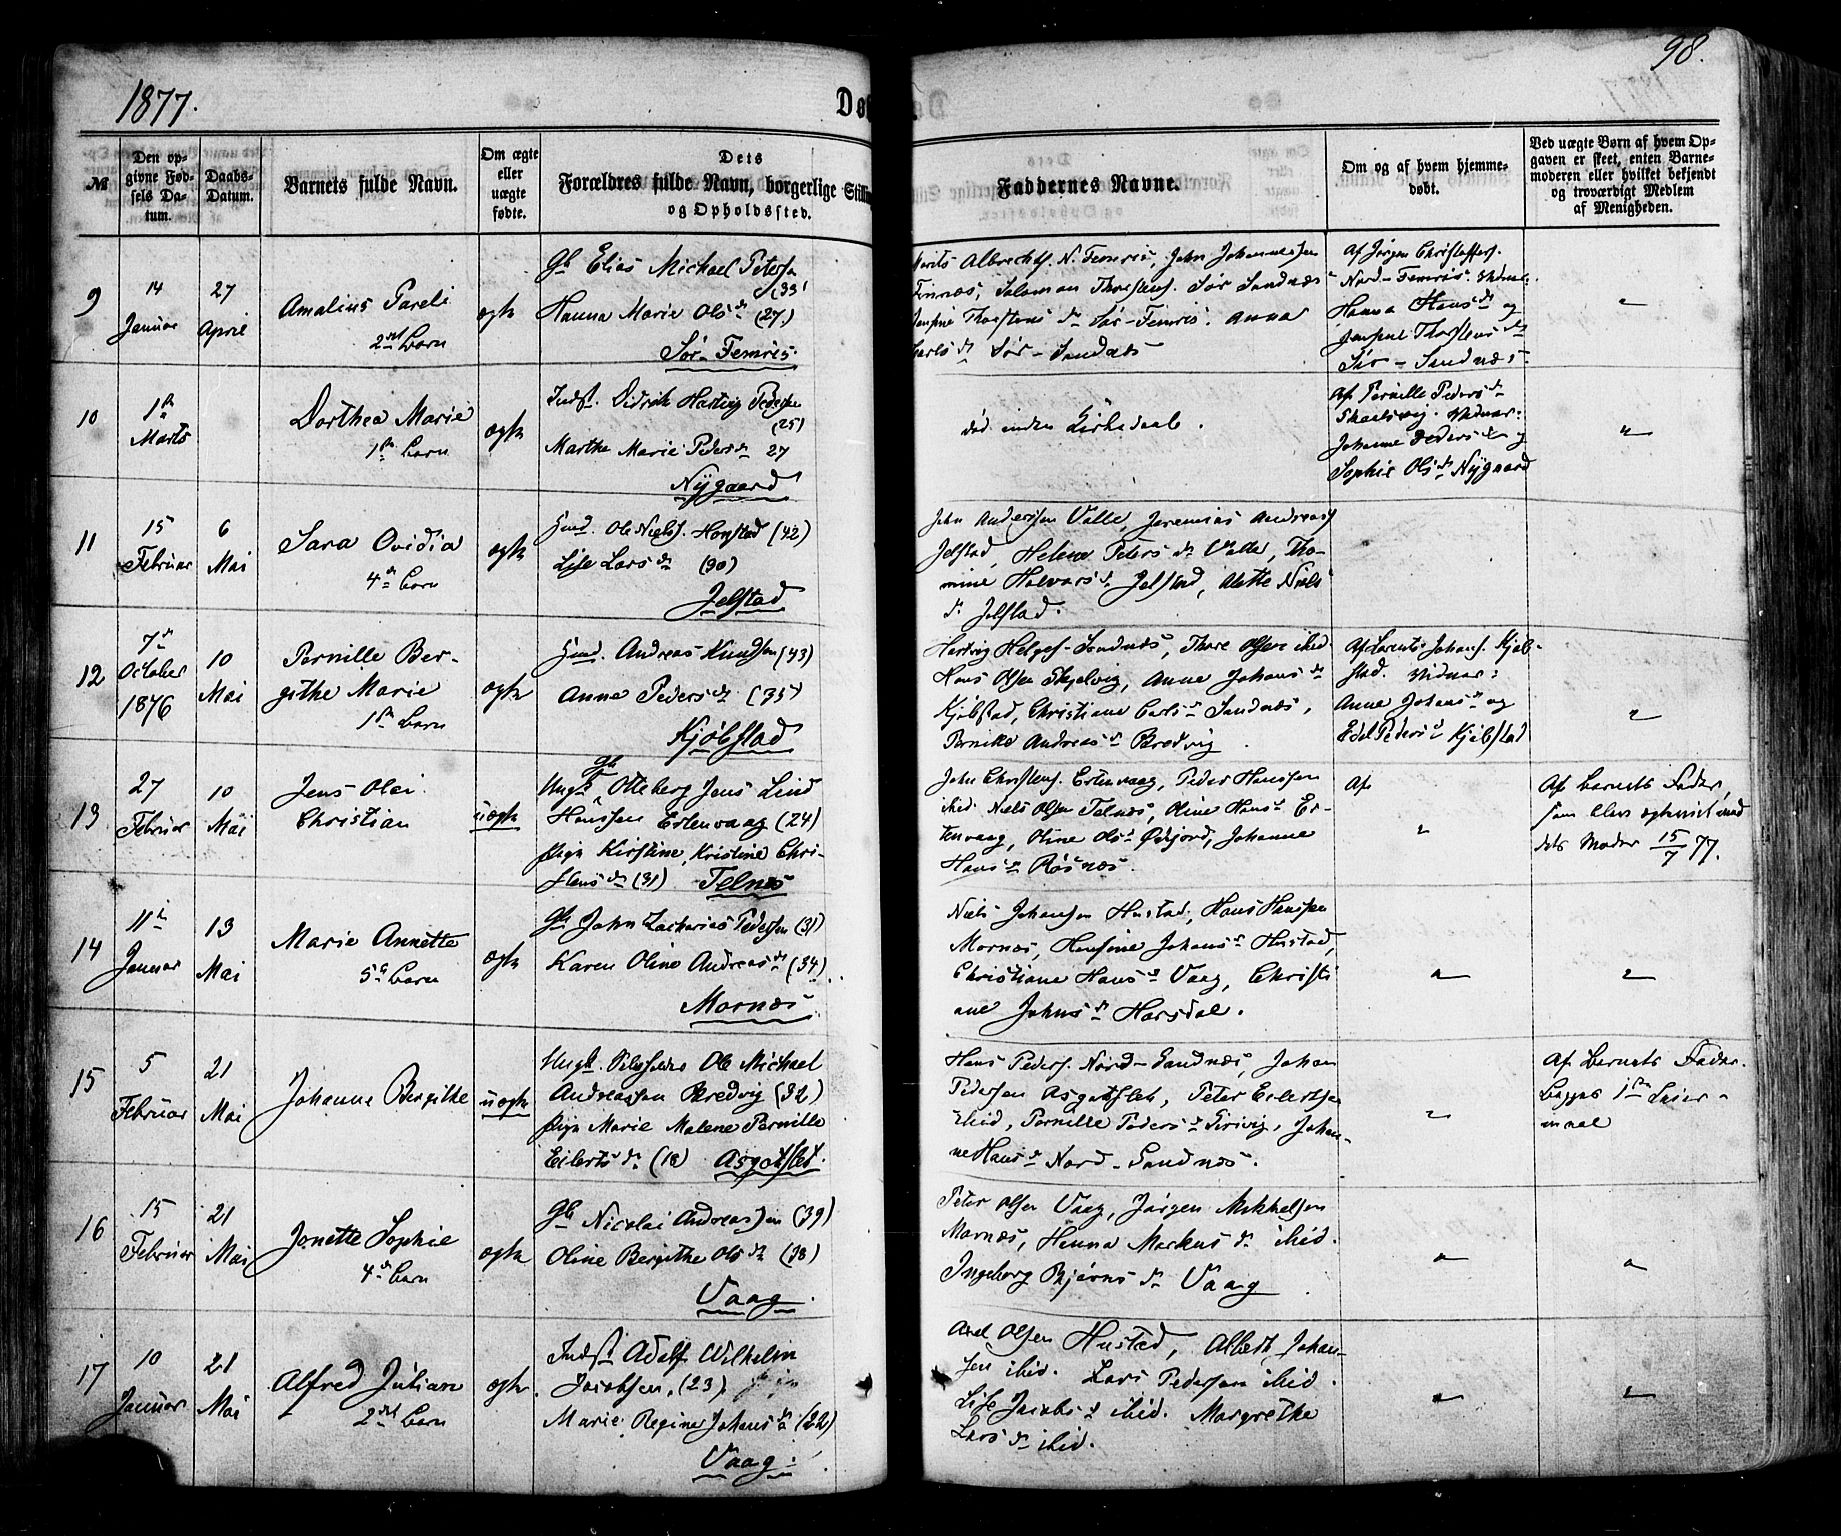 1877.
98.
Dø
№
Den opgivne Fødsels Datum.
Daabs-Datum.
Barnets fulde Navn.
Om ægte eller uægte fødte.
Dets
Forældres fulde Navn, borgerlige Still
og Opholdssted.
Faddernes Navne.
Om og af hvem hjemmedøbt.
Ved uægte Børn af hvem Opgaven er skeet, enten Barnemoderen eller hvilket bekjendt og troværdigt Medlem af Menigheden.
9
14 Januar
27 April
Amalius Pareli
2det Barn
ægte
Gb Elias Michael Peters
(33)
Hanna Marie Olsdr (27)
Sør-Femris
Albrechts. N. Femris, John Johannessen
Finnæs, Salomon Thorstens. Sør Sandnæs
Thorstensdr Sør-Femris. Anna
Carlsdr Sør-Sandnæs
Af Jørgen Christoffers.
Nord-Femris. Vidner
Hanna Hansdr og
Thorstensdr
Sør-Sandnæs
"
10
1ste Marts
Dorthea Marie
1ste Barn
ægte
Indst. Didrik Hartvig Peders
(25)
Marthe Marie Pedersdr 27
Nygaard
død inden Kirkedaab.
Af Pernille Pedersdr
Skaalsvig. Vidner:
Johanne Pedersdr og
Sophie Olsdr Nygaard
"
11
15 Februar
6 Mai
Sara Ovidia
4de Barn
ægte
Gmd. Ole Niels. Honstad (42)
Lise Larsdr (30)
Jelstad
John Anderssen Valle, Jeremias Andreass
Jelstad, Helene Petersdr Valle, Tho-
mine Halvarsdr Jelstad, Alette Niels
dr Jelstad.
12
7de October 1876
10 Mai
Pernille Ber-
githe Marie
1ste Barn
ægte
Gmd. Andreas Knudsen (43)
Anne Pedersdr (35)
Kjøbstad
Hartvig Helges. Sandnæs, Thore Olsen ibid
Hans Olsen Skjelvig, Anne Johansdr
Kjøbstad, Christiane Carlsdr Sandnæs,
Pernille Andreasdr Bredvig.
Af Lorents Johans. Kjøb-
stad. Vidner:
Anne Johansdr og
Edel Pedersdr Kjøbstad
"
13
27 Februar
10 Mai
Jens Olai
Christian
uægte
Gb
Ungk Otteberg Jens Lind
Hanssen Ertenvaag (24)
Pige Kirstine Kristine Chri-
stensdr (31) Telnæs
John Christens. Ertenvaag, Peder Hanssen
ibid. Niels Olsen Telnæs, Oline Hansdr Er-
tenvaag, Oline Olsdr Oxfjord, Johanne
Hansdr Røsnæs.
Af
"
Af Barnets Fader,
som blev ægteviet med
dets Moder 15/7 77.
14
11te Januar
13 Mai
Marie Annette
5te Barn
ægte
Gb John Zacharias Pedersen (31)
Karen Oline Andreasdr (34)
Mornæs
Niels Johansen Hustad, Hans Hanssen
Mornæs, Hansine Johansdr Hustad,
Christiane Hansdr Vaag, Christi
ane Johnsdr Harsdal.
"
"
15
5 Februar
21 Mai
Johanne Bergithe
uægte
Ungk. Ole Michael
Andreassen Bredvig (32)
Pige Marie Malene Pernille
Eilertsdr (18) Asgotslet.
Hans Peders. Nord-Sandnæs, Johan
Pedersen Asgotslet, Peter Eilertsen
ibid, Pernille Pedersdr Sirivig, Johan-
ne Hansdr Nord-Sandnæs.
"
Af Barnets Fader.
Begges 1ste Leier-
maal
16
15 Februar
21 Mai
Jonette Sophie
4de Barn
ægte
Gb Nicolai Andreassen (39)
Oline Bergithe Olsdr (38)
Vaag.
Peter Olsen Vaag, Jørgen Mikkelsen
Mornæs, Hanna Markusdr ibid.
Ingeborg Bjørnsdr Vaag
"
"
17
10 Januar
21 Mai
Alfred Julian
2det Barn
ægte.
Indst Adolf Wilhelm
Jacobsen, (23)
Marie Regine Johansdr (22)
Vaag.
Axel Olsen Hustad, Albert Johan-
sen ibid. Lars Pedersen ibid.
Lise Jacobsdr ibid. Margrethe
Larsdr ibid.
"
"